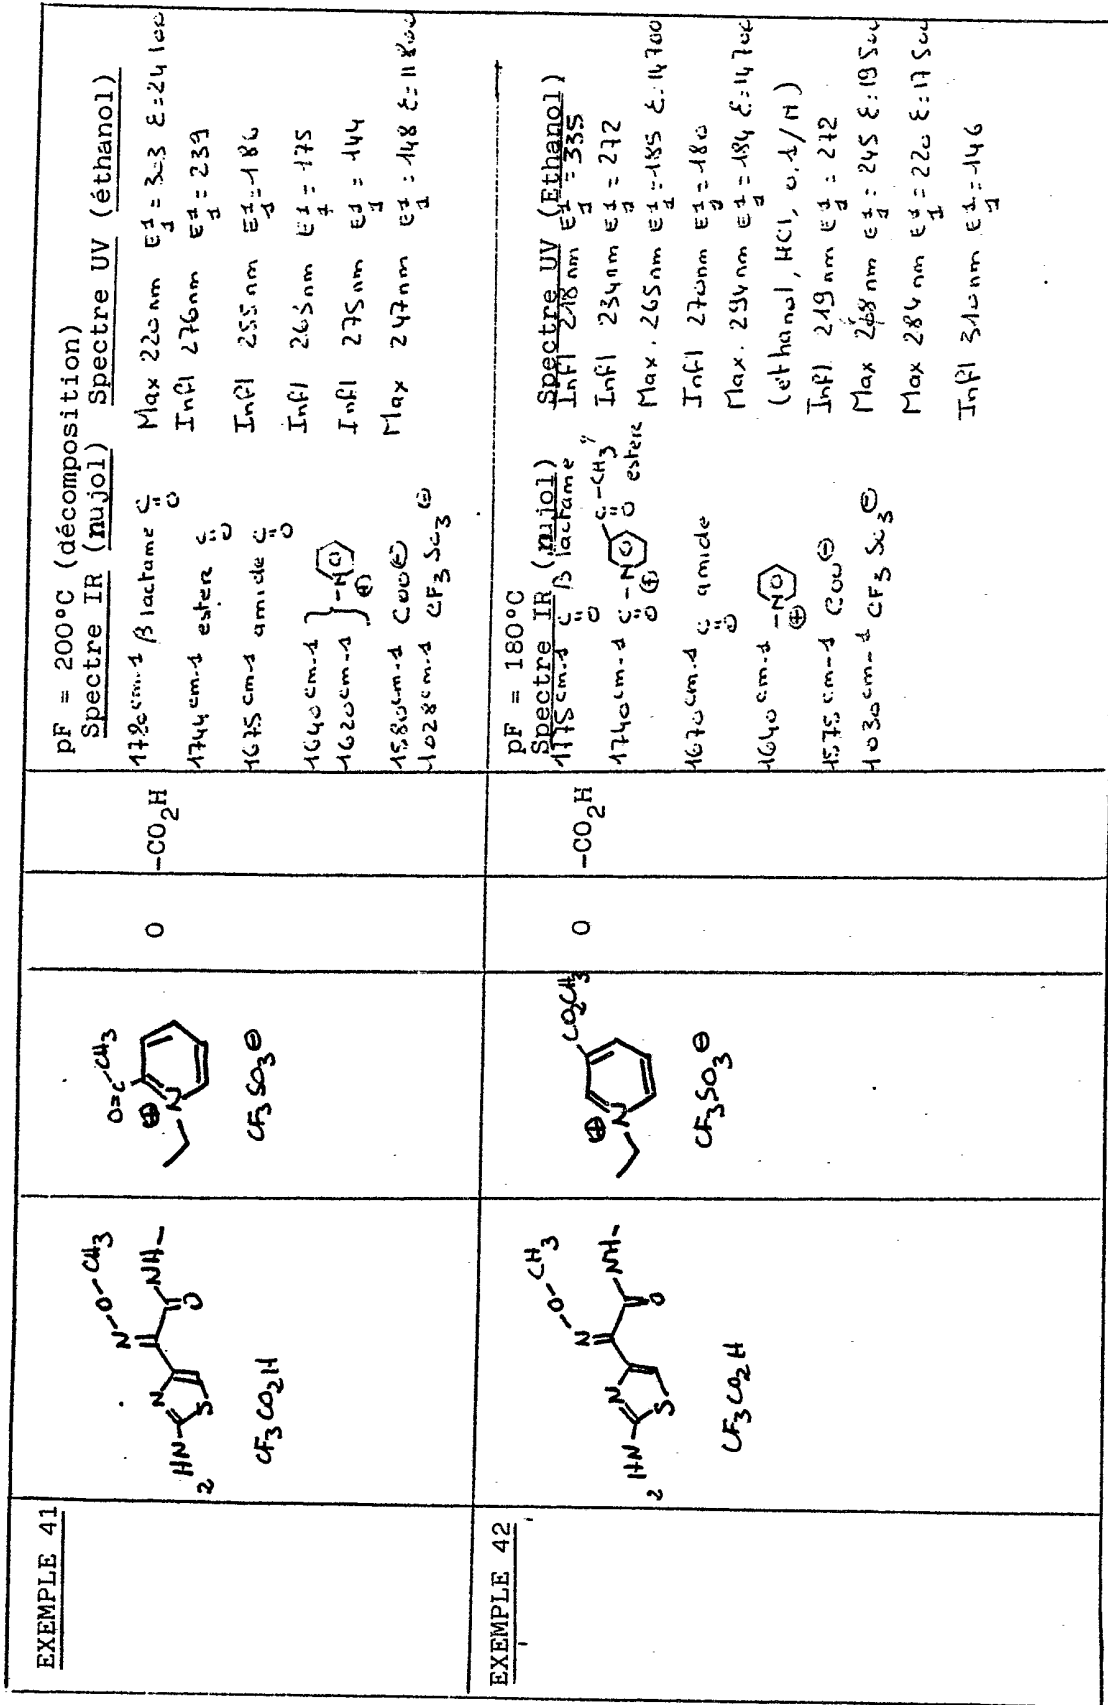 EXEMPLE 41
H₂N
N
S
N-O-CH₃
NH-
O
CF₃CO₂H
O=C-CH₃
⊕
N
CF₃SO₃⊖
O
-CO₂H
pF = 200°C (décomposition)
Spectre IR (nujol)
1780 cm-1 β lactame C=O
1744 cm-1 ester C=O
1675 cm-1 amide C=O
1640 cm-1
1620 cm-1 } -N ⊕
1580 cm-1 COO⊖
1028 cm-1 CF₃SO₃⊖
Spectre UV (éthanol)
Max 220nm E¹₁ = 303 ε=24 100
Infl 276nm E¹₁ = 239
Infl 255nm E¹₁ = 186
Infl 263nm E¹₁ = 175
Infl 275nm E¹₁ = 144
Max 247nm E¹₁ = 148 ε=11 800
EXEMPLE 42
H₂N
N
S
N-O-CH₃
NH-
O
CF₃CO₂H
CO₂CH₃
⊕
N
CF₃SO₃⊖
O
-CO₂H
pF = 180°C
Spectre IR (nujol)
1175 cm-1 C=O β lactame
1740 cm-1 C=O -N ⊕ C-CH₃ O ester
1670 cm-1 C=O amide
1640 cm-1 -N ⊕
1575 cm-1 COO⊖
1030 cm-1 CF₃SO₃⊖
Spectre UV (Ethanol)
Infl 218 nm E¹₁ = 335
Infl 234nm E¹₁ = 272
Max. 265nm E¹₁ = 185 ε=14 700
Infl 270nm E¹₁ = 180
Max. 294nm E¹₁ = 184 ε=14 700
(ethanol, HCl, 0.1/N)
Infl. 219nm E¹₁ = 272
Max 268nm E¹₁ = 245 ε=19 500
Max 284nm E¹₁ = 220 ε=17 500
Infl 310nm E¹₁ = 146